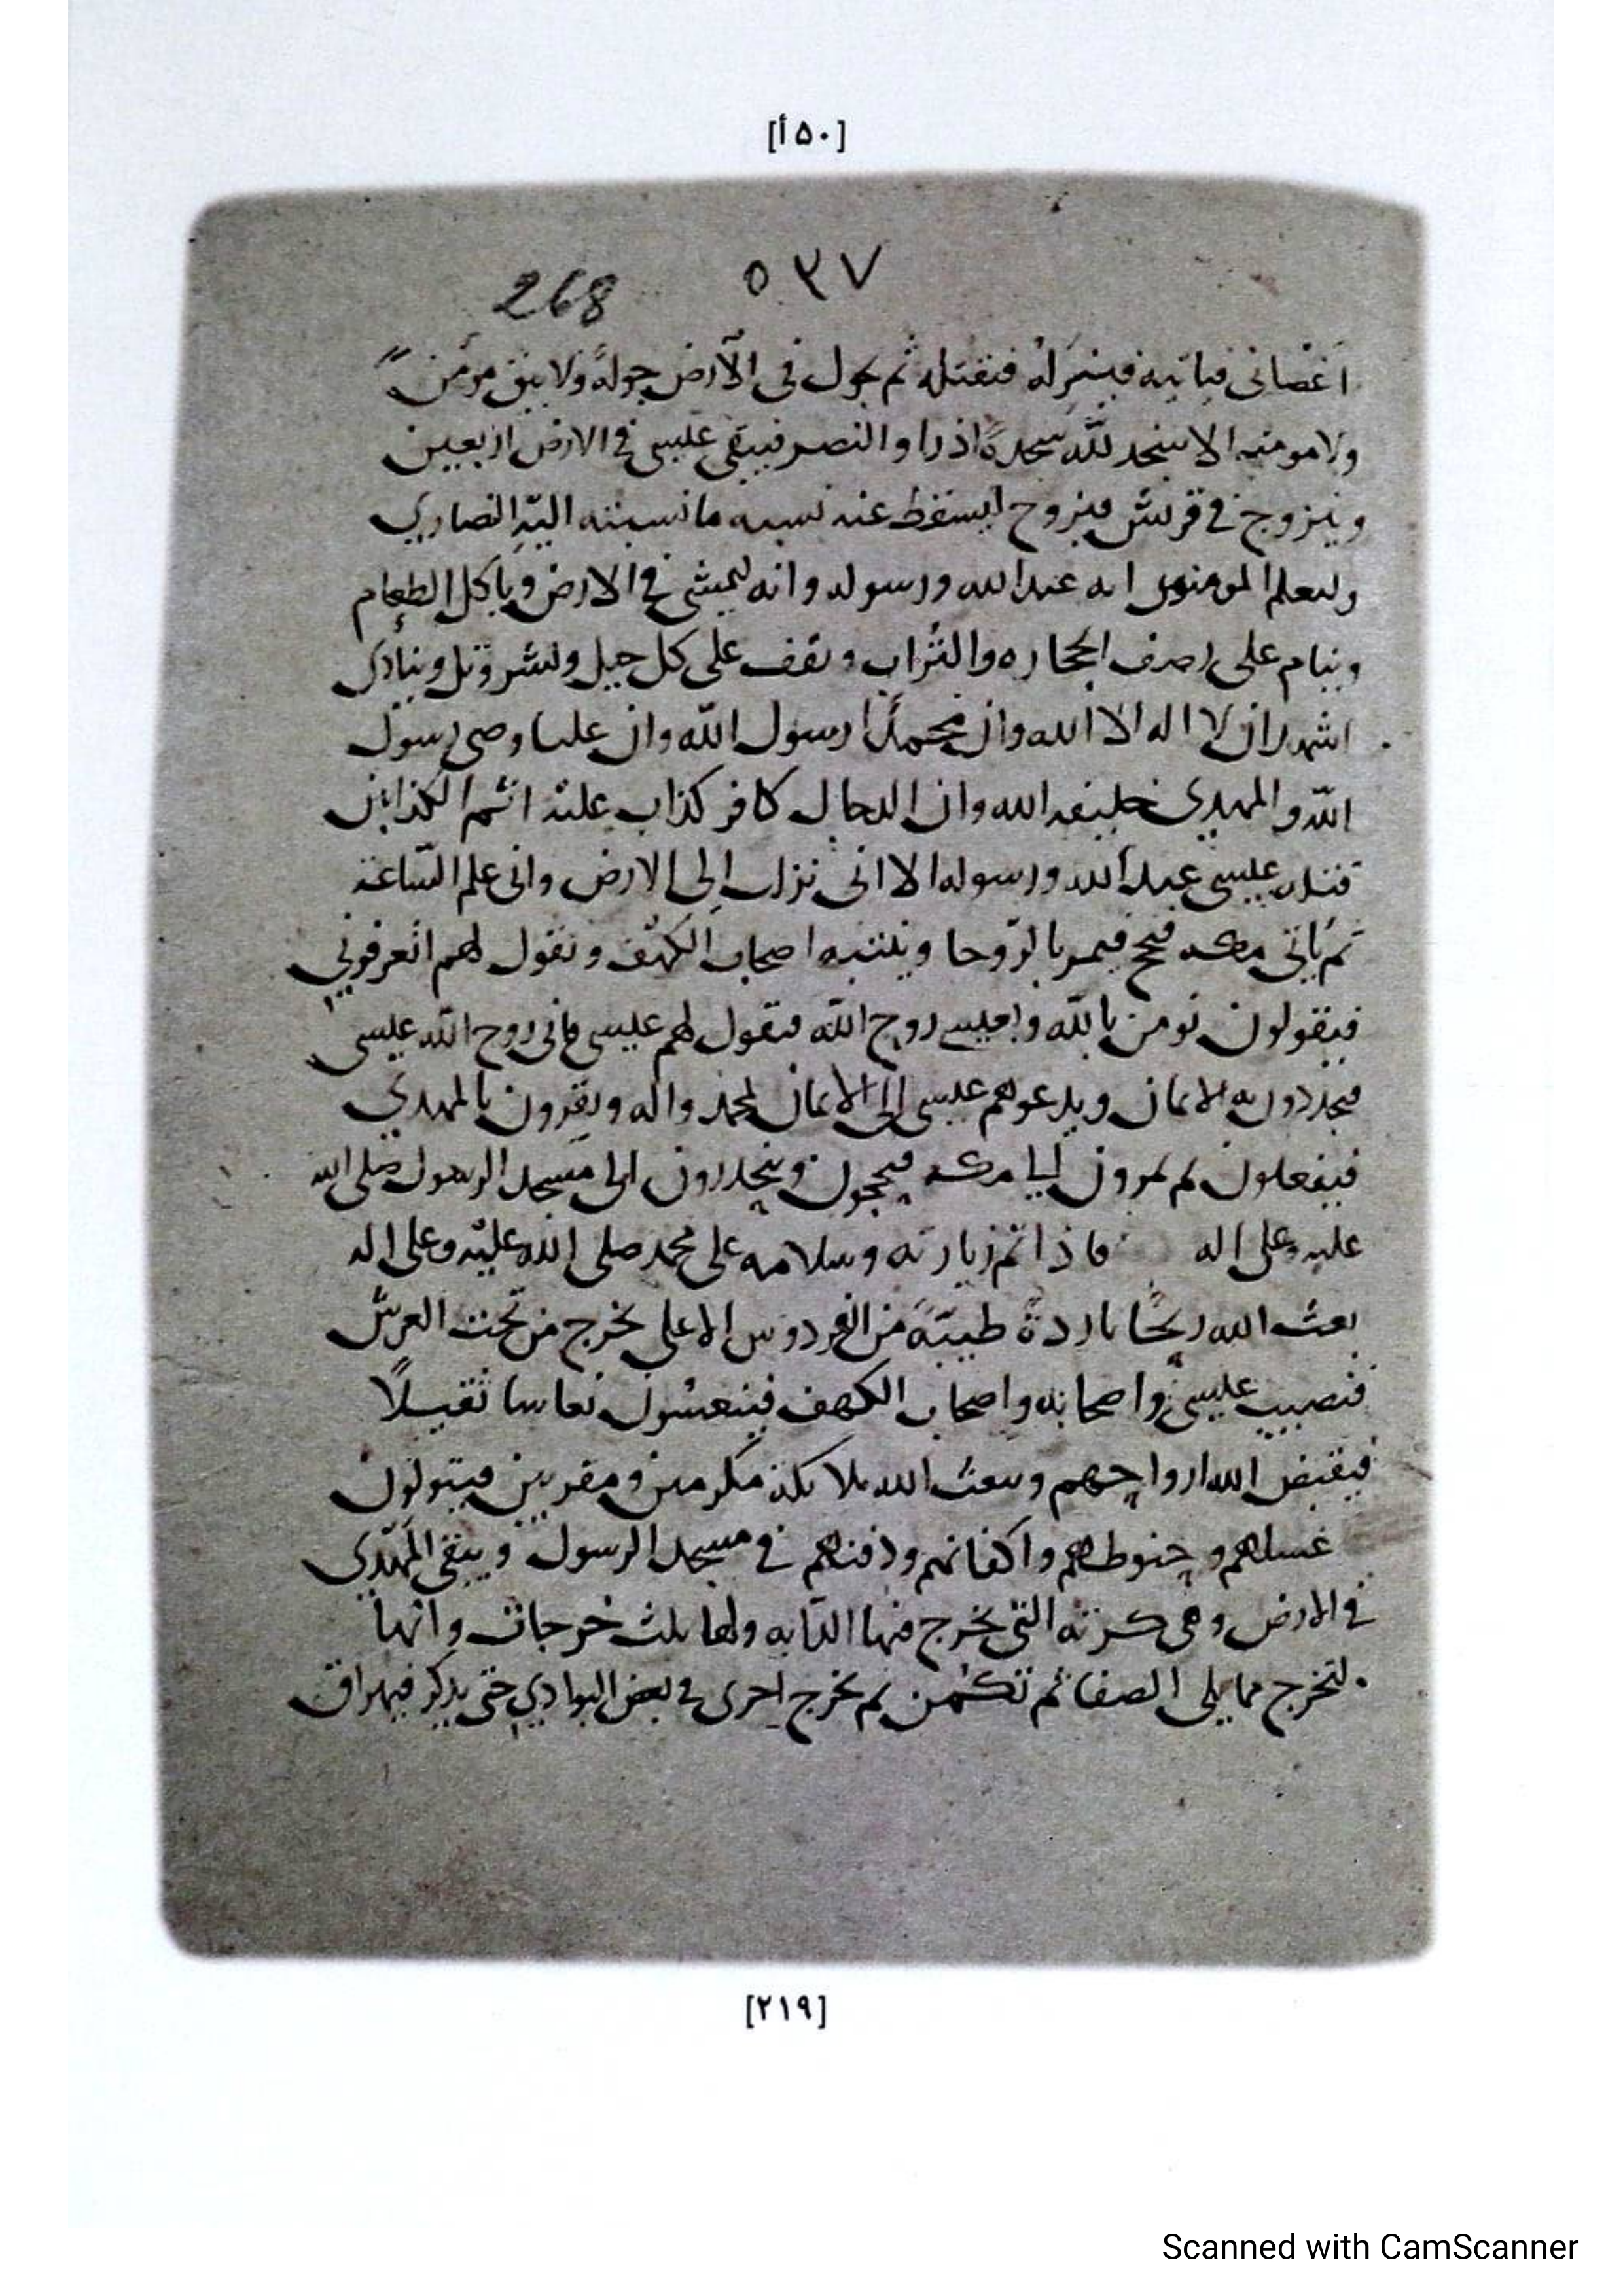 [٥٠أ]
٥٣٧ 268
اغصانى فياتيه فينبرله فيقتله ثم يجول فى الأرض جولةً ولا يبقى مؤمنٌ
ولا مومنه الا سجد لله سجدةً اذ راوا النصر فيبقى عيسى في الارض اربعين
ويتزوج في قريش فيزوج ليسقط عنه نسبه ما نسبته اليه النصارى
وليعلم المومنون انه عبد الله ورسوله وانه ليمشى في الارض وياكل الطعام
وينام على الحجاره والتراب ويقف على كل جبل ونشر وتل وينادى
اشهد ان لا اله الا الله وان محمدًا رسول الله وان عليا وصى رسول
الله والمهدى خليفه الله وان الدجال كافر كذاب عليه اثم الكذابين
قتله عيسى عبد الله ورسوله الا انى نزلت إلى الارض وانى علم الساعة
ثم ياتى مكه فيحج فيمر بالروحا وينتبه اصحاب الكهف ويقول لهم اتعرفوني
فيقولون نومن بالله وبعيسى روح الله فيقول لهم عيسى فانى روح الله عيسى
فيجددون به الايمان ويدعوهم عيسى إلى الايمان لمحمد واله ويقرون بالمهدي
فيفعلون ثم يمرون إلى مكه فيحجون وينحدرون الى مسجد الرسول صلى الله
عليه وعلى اله فاذا تم زيارته وسلامه على محمد صلى الله عليه وعلى اله
بعث الله ريحًا باردةً طيبةً من الفردوس الاعلى يخرج من تحت العرش
فتصيب عيسى واصحابه واصحاب الكهف فينعسون نعاسا ثقيلًا
فيقبض الله ارواحهم ويبعث الله ملائكة مكرمين ومقربين فيتولون
غسلهم وحنوطهم واكفانهم ودفنهم في مسجد الرسول ويبقى المهدي
في الارض وهى كرته التى يخرج فيها الدابه ولها ثلث خرجات وانها
لتخرج مما يلى الصفا ثم تكمن ثم تخرج اخرى في بعض البوادي حتى يذكر فيهراق
[٢١٩]
Scanned with CamScanner